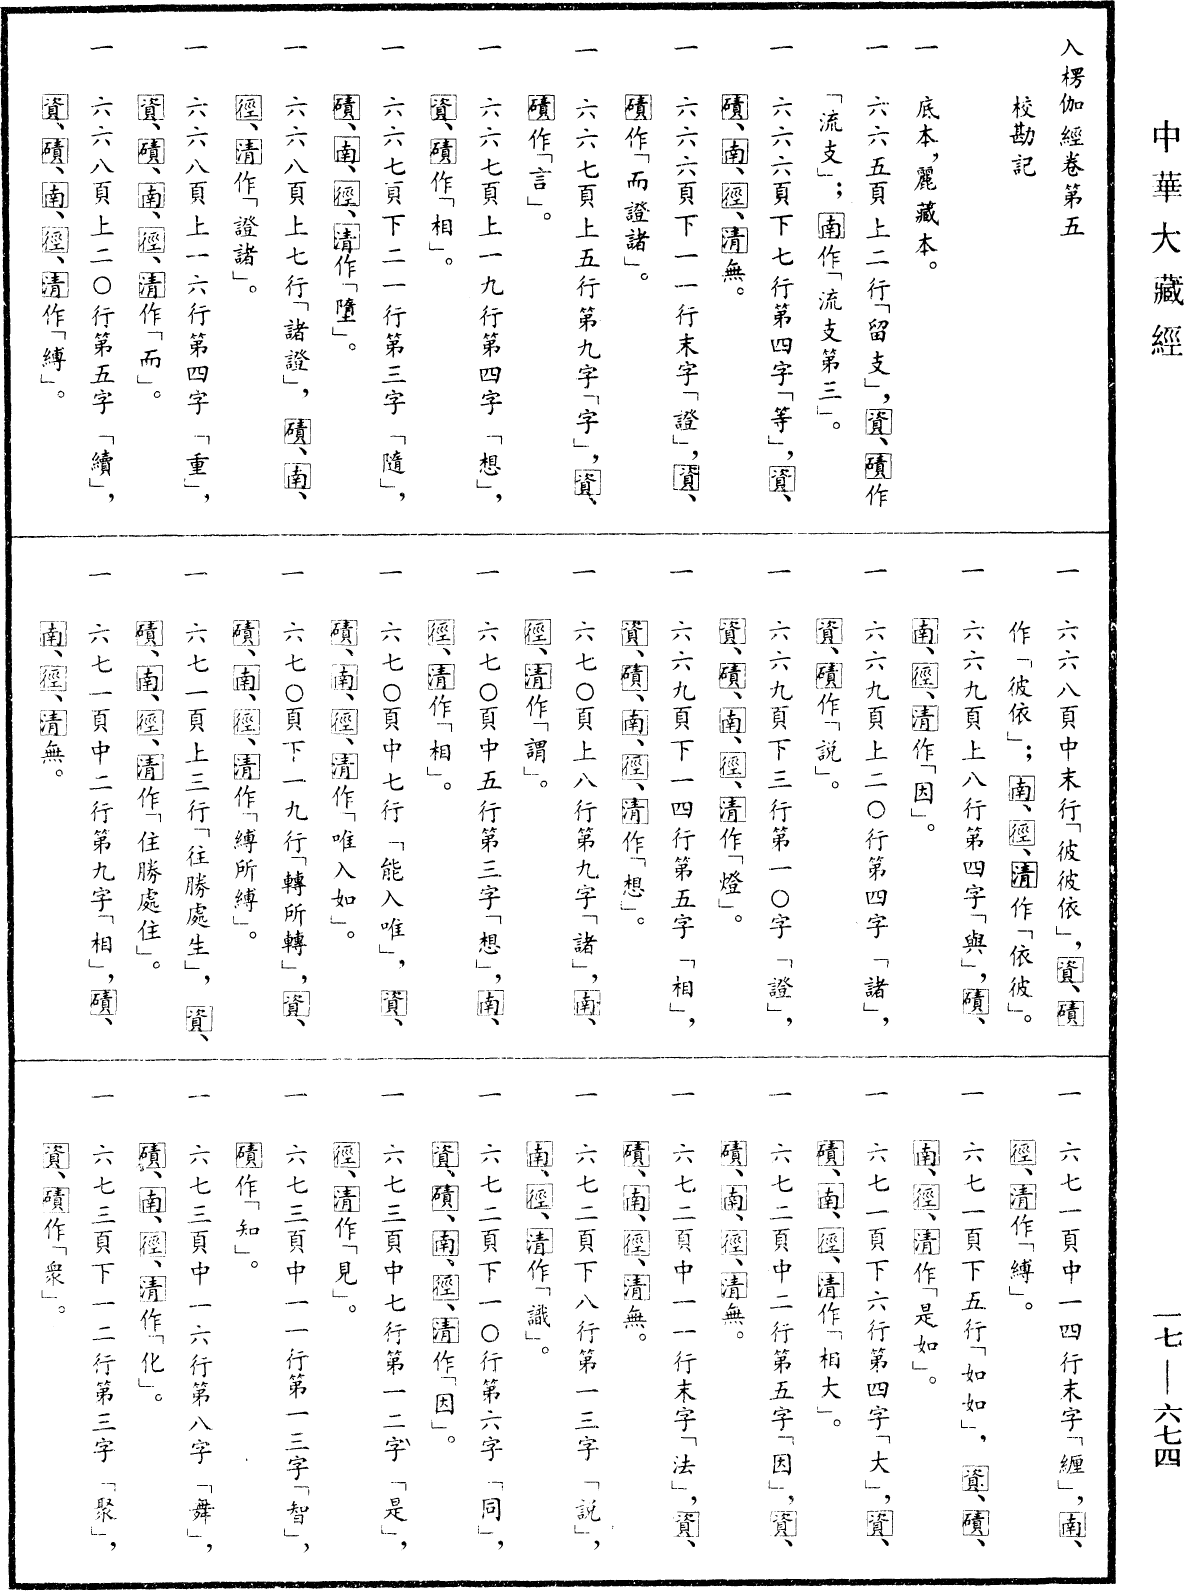 中華大藏經
一七—六七四
入楞伽經卷第五
校勘記
一　底本，麗藏本。
一　六六五頁上二行「留支」，資、磧作
「流支」；南作「流支第三」。
一　六六六頁下七行第四字「等」，資、
磧、南、徑、清無。
一　六六六頁下一一行末字「證」，資、
磧作「而證諸」。
一　六六七頁上五行第九字「字」，資、
磧作「言」。
一　六六七頁上一九行第四字「想」，
資、磧作「相」。
一　六六七頁下二一行第三字「隨」，
磧、南、徑、清作「墮」。
一　六六八頁上七行「諸證」，磧、南、
徑、清作「證諸」。
一　六六八頁上一六行第四字「重」，
資、磧、南、徑、清作「而」。
一　六六八頁上二〇行第五字「續」，
資、磧、南、徑、清作「縛」。
一　六六八頁中末行「彼彼依」，資、磧
作「彼依」；南、徑、清作「依彼」。
一　六六九頁上八行第四字「與」，磧、
南、徑、清作「因」。
一　六六九頁上二〇行第四字「諸」，
資、磧作「説」。
一　六六九頁下三行第一〇字「證」，
資、磧、南、徑、清作「燈」。
一　六六九頁下一四行第五字「相」，
資、磧、南、徑、清作「想」。
一　六七〇頁上八行第九字「諸」，南、
徑、清作「謂」。
一　六七〇頁中五行第三字「想」，南、
徑、清作「相」。
一　六七〇頁中七行「能入唯」，資、
磧、南、徑、清作「唯入如」。
一　六七〇頁下一九行「轉所轉」，資、
磧、南、徑、清作「縛所縛」。
一　六七一頁上三行「往勝處生」，資、
磧、南、徑、清作「住勝處住」。
一　六七一頁中二行第九字「相」，磧、
南、徑、清無。
一　六七一頁中一四行末字「纏」，南、
徑、清作「縛」。
一　六七一頁下五行「如如」，資、磧、
南、徑、清作「是如」。
一　六七一頁下六行第四字「大」，資、
磧、南、徑、清作「相大」。
一　六七二頁中二行第五字「因」，資、
磧、南、徑、清無。
一　六七二頁中一一行末字「法」，資、
磧、南、徑、清無。
一　六七二頁下八行第一三字「説」，
南、徑、清作「識」。
一　六七二頁下一〇行第六字「同」，
資、磧、南、徑、清作「因」。
一　六七三頁中七行第一二字「是」，
徑、清作「見」。
一　六七三頁中一一行第一三字「智」，
磧作「知」。
一　六七三頁中一六行第八字「舞」，
磧、南、徑、清作「化」。
一　六七三頁下一二行第三字「聚」，
資、磧作「衆」。